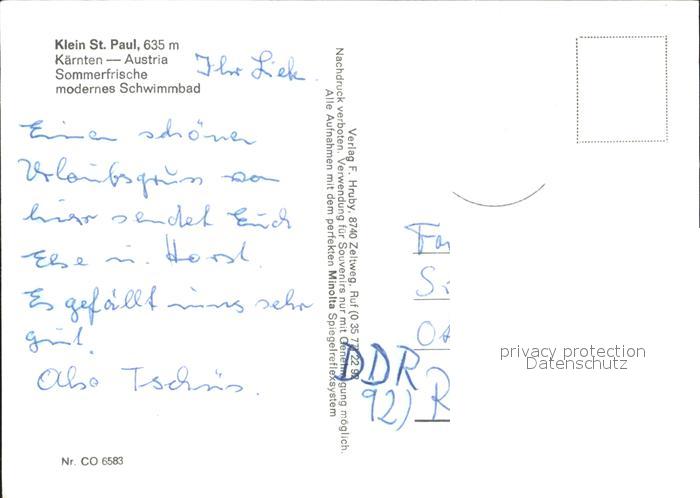 Klein St. Paul, 635 m
Kärnten — Austria
Sommerfrische
modernes Schwimmbad
Ihr Liek.
Einen schönen
Urlaubsgruss von
hier sendet Euch
Else u. Horst.
Es gefällt uns sehr
gut.
Also Tschüs.
Nr. CO 6583
Verlag F. Hruby, 8740 Zeltweg, Ruf (0 35 77) 22 92
Nachdruck verboten. Verwendung für Souvenirs nur mit Genehmigung möglich.
Alle Aufnahmen mit dem perfekten Minolta Spiegelreflexsystem
Fa
S
Os
DDR
92) R
privacy protection
Datenschutz